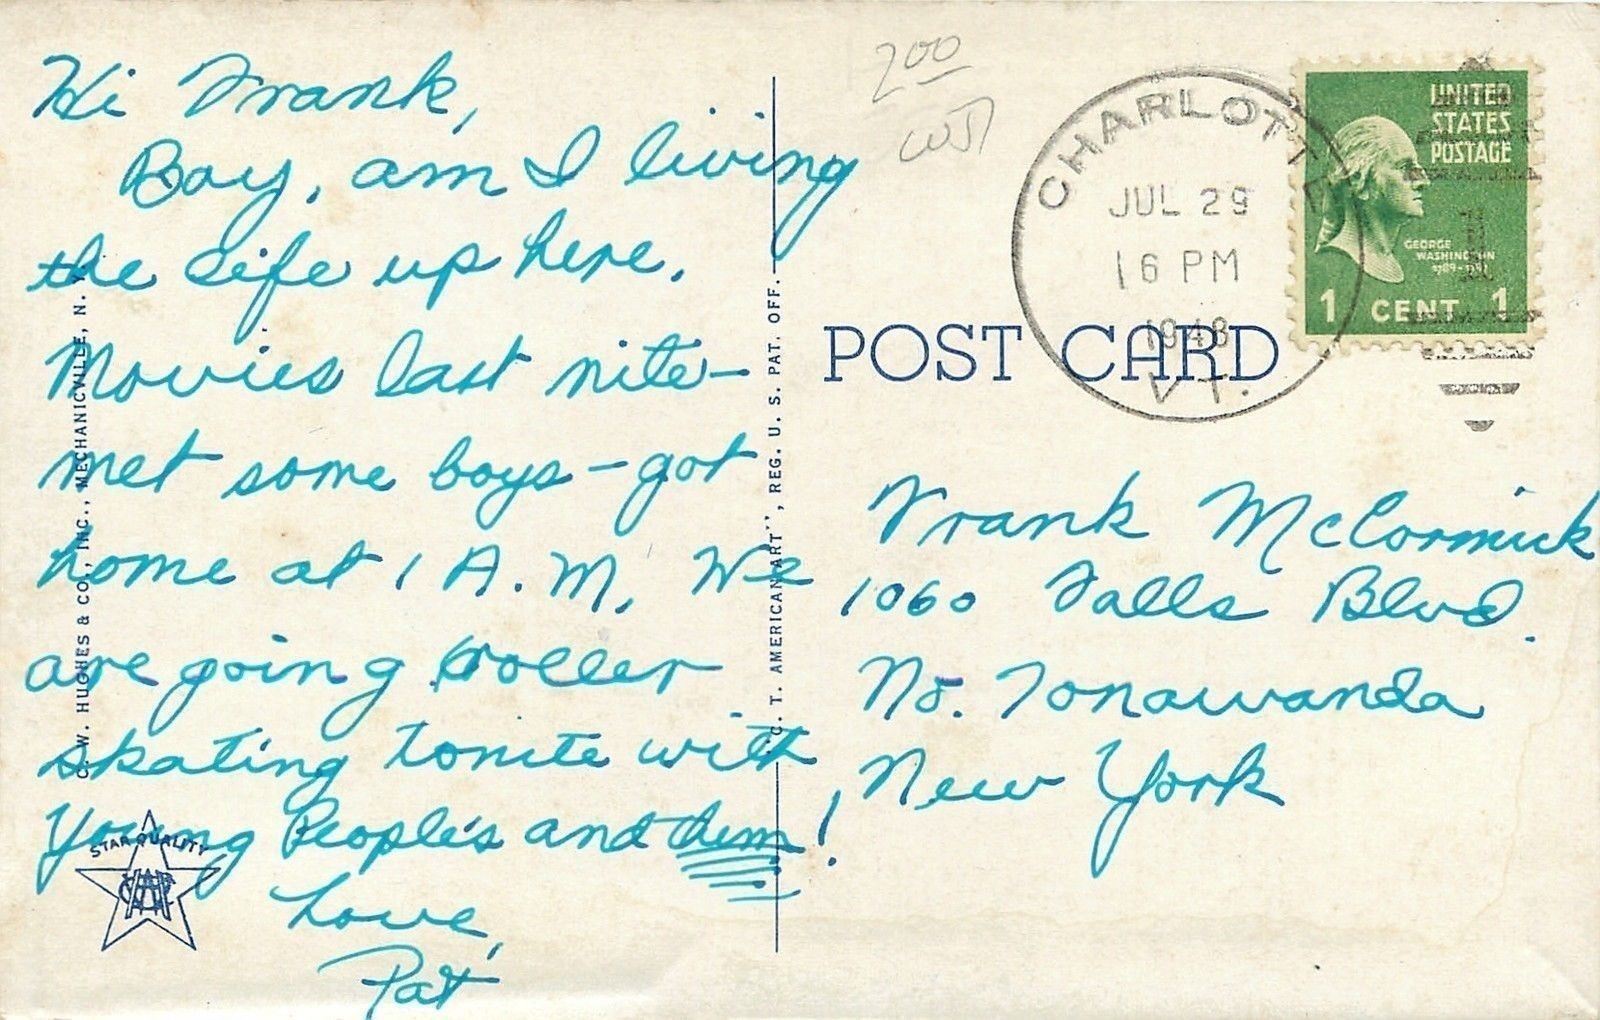 Hi Frank,
Boy, am I living
the life up here.
Movies last nite-
met some boys - got
home at 1 A.M. We
are going roller
skating tonite with
Young People's and them!
Love,
Pat
C. W. HUGHES & CO., INC., MECHANICVILLE, N. Y.
STAR QUALITY
"C. T. AMERICAN ART", REG. U. S. PAT. OFF.
POST CARD
2 00
CHARLOTTE
JUL 29
16 PM
1948
VT.
UNITED
STATES
POSTAGE
GEORGE
WASHINGTON
1789-1797
1 CENT 1
Frank McCormick
1060 Falls Blvd.
No. Tonawanda
New York